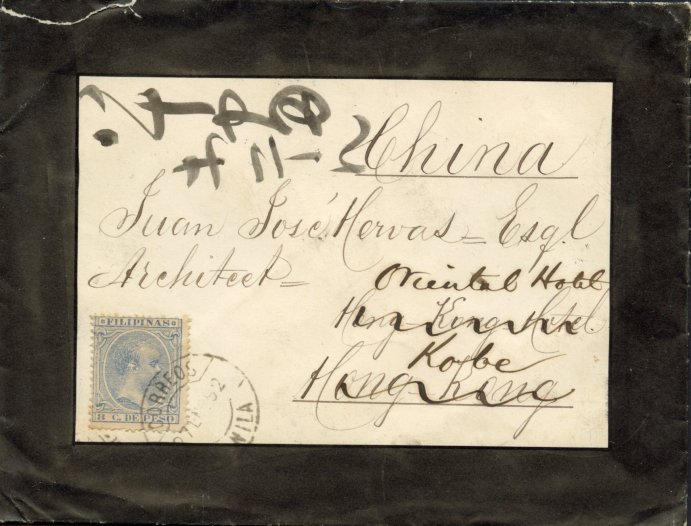 China
Juan José Hervas = Esql
Architect =
Oriental Hotel
Hong Kong Hotel
Kobe
Hong-Kong
FILIPINAS
8 C. DE PESO
CORREOS
92
NILA